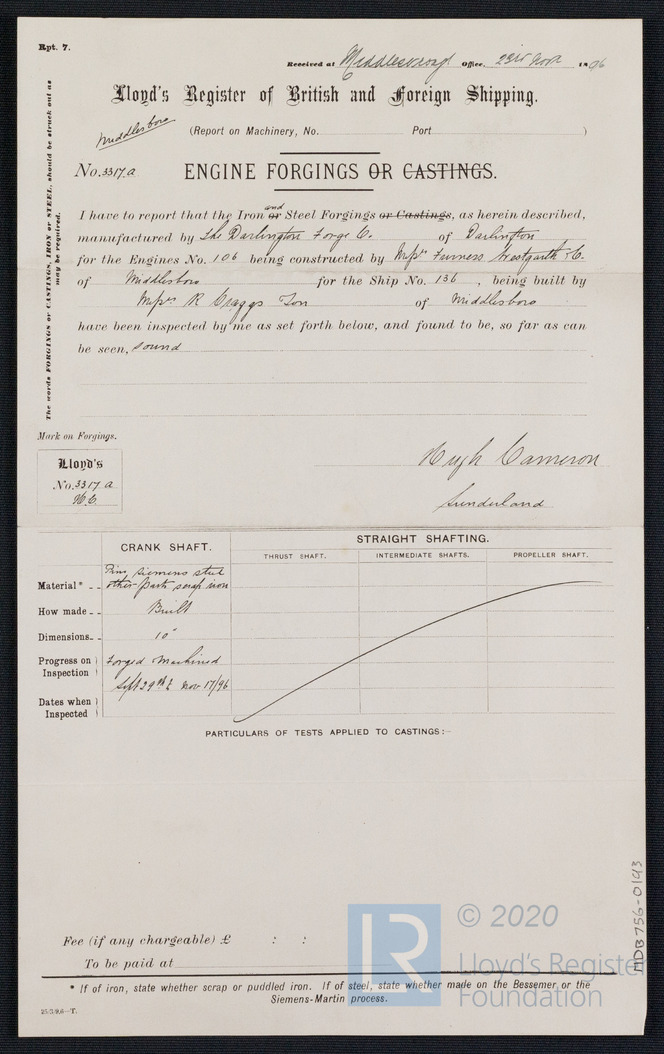 Rpt. 7.
Received at Middlesbrough Office. 23rd Novr 1896
Lloyd's Register of British and Foreign Shipping.
Middlesboro (Report on Machinery, No. Port )
No. 3317.a ENGINE FORGINGS OR CASTINGS.
I have to report that the Iron or and Steel Forgings or Castings, as herein described,
manufactured by The Darlington Forge Co. of Darlington
for the Engines No. 106 being constructed by Messrs Furness Westgarth & Co.
of Middlesboro for the Ship No. 136 , being built by
Messrs R Craggs Son of Middlesboro
have been inspected by me as set forth below, and found to be, so far as can
be seen, sound
The words FORGINGS or CASTINGS, IRON or STEEL, should be struck out as
may be required.
Mark on Forgings.
Lloyd's
No. 3317 a
H.C.
Hugh Cameron
Sunderland
CRANK SHAFT.
STRAIGHT SHAFTING.
THRUST SHAFT. INTERMEDIATE SHAFTS. PROPELLER SHAFT.
Material* Pins, Siemens steel
other parts scrap iron
How made Built
Dimensions 10"
Progress on Inspection Forged Machined
Dates when Inspected Sept 29th & Nov 17/96
PARTICULARS OF TESTS APPLIED TO CASTINGS:—
Fee (if any chargeable) £ : :
To be paid at
* If of iron, state whether scrap or puddled iron. If of steel, state whether made on the Bessemer or the
Siemens-Martin process.
25/3/96—T.
MDB756-0193
LR
© 2020
Lloyd's Register
Foundation